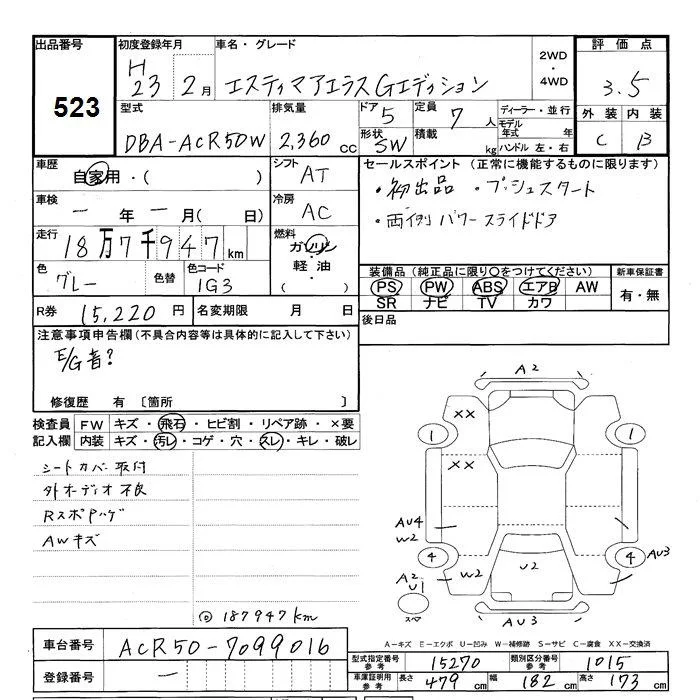 出品番号 523
初度登録年月 H 23 2月
車名・グレード エスティマアエラスGエディション
2WD・4WD
評価点 3.5
外装 C 内装 B
型式 DBA-ACR50W
排気量 2,360 cc
ドア 5 形状 SW
定員 7人 積載 kg
ディーラー・並行
モデル年式 年
ハンドル 左・右
車歴 自家用・( )
シフト AT
車検 一年一月(日)
冷房 AC
走行 18万7千947km
燃料 ガソリン・軽油・( )
色 グレー 色替 色コード 1G3
R券 15,220円 名変期限 月 日
セールスポイント (正常に機能するものに限ります)
・初出品 ・プッシュスタート
・両側パワースライドドア
装備品(純正品に限り○をつけてください) 新車保証書
PS PW ABS エアB AW 有・無
SR ナビ TV カワ
後日品
注意事項申告欄(不具合内容等は具体的に記入して下さい)
E/G音?
修復歴 有〔箇所 〕
検査員記入欄 FW キズ・飛石・ヒビ割・リペア跡・×要
内装 キズ・汚レ・コゲ・穴・スレ・キレ・破レ
シートカバー取付
外オーディオ不良
RスポPハゲ
AWキズ
◎187947km
車台番号 ACR50-7099016
登録番号 一
A2
XX
1 1
XX
AU4
W2
4 4 AU3
A2
U1
W2 U2
スペア
AU3
A-キズ E-エクボ U-凹み W-補修跡 S-サビ C-腐食 XX-交換済
型式指定番号 参考 15270 類別区分番号 参考 1015
車庫証明用 参考 長さ 479cm 幅 182cm 高さ 173cm